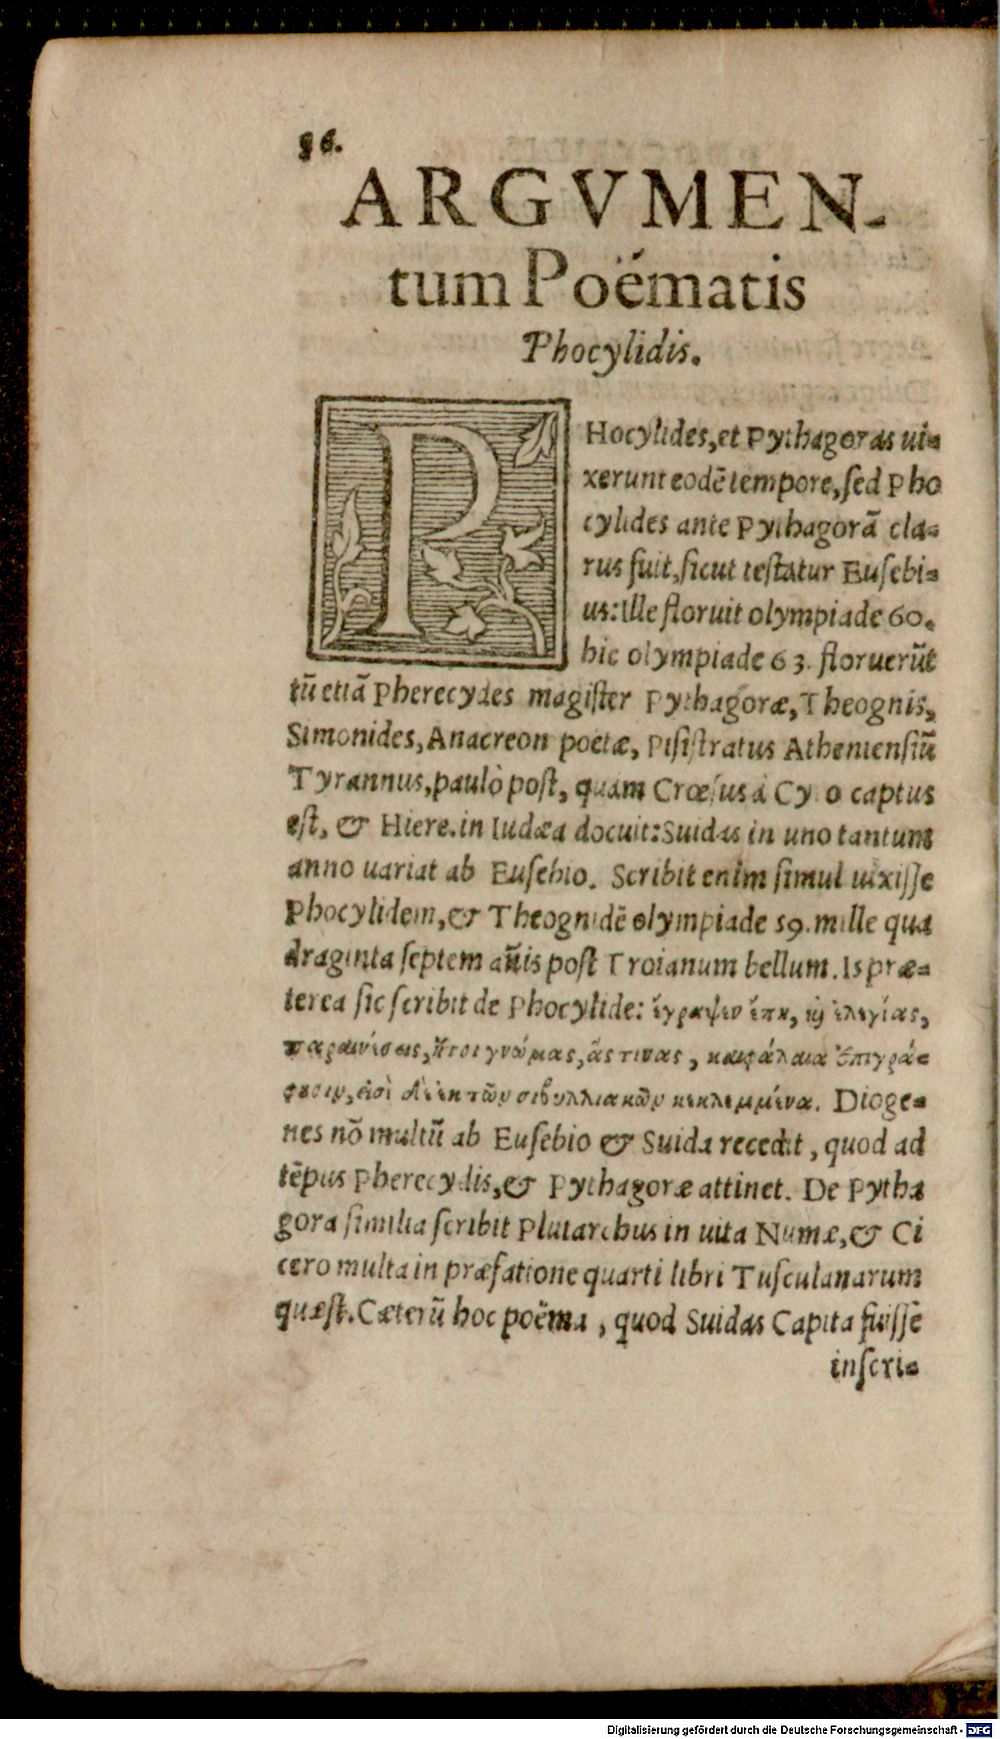 56.
ARGVMEN-
tum Poëmatis
Phocylidis.
PHocylides, et Pythagoras ui-
xerunt eodē tempore, sed Pho
cylides ante Pythagorā cla-
rus fuit, sicut testatur Eusebi-
us: Ille floruit olympiade 60.
hic olympiade 63. floruerūt
tū etiā Pherecydes magister Pythagoræ, Theognis,
Simonides, Anacreon poetæ, Pisistratus Atheniensiū
Tyrannus, paulò post, quàm Crœsus à Cy o captus
est, & Hiere. in Iudæa docuit: Suidas in uno tantum
anno uariat ab Eusebio. Scribit enim simul uixisse
Phocylidem, & Theognidē olympiade 59. mille qua
draginta septem an̄is post Troianum bellum. Is præ-
terea sic scribit de Phocylide: ἔγραψεν ἔπη, ϗ ἐλεγίας,
παραινέσεις, ἤτοι γνώμας, ἅς τινας, κεφάλαια ἐπιγρά-
φουσιν, εἰσὶ δὲ ἐκ τῶν σιβυλλιακῶν κεκλεμμένα. Dioge-
nes nō multū ab Eusebio & Suida recedit, quod ad
tēpus Pherecydis, & Pythagoræ attinet. De Pytha
gora similia scribit Plutarchus in uita Numæ, & Ci
cero multa in præfatione quarti libri Tusculanarum
quæst. Cæterū hoc poëma, quod Suidas Capita fuisse
inscri-
Digitalisierung gefördert durch die Deutsche Forschungsgemeinschaft - DFG